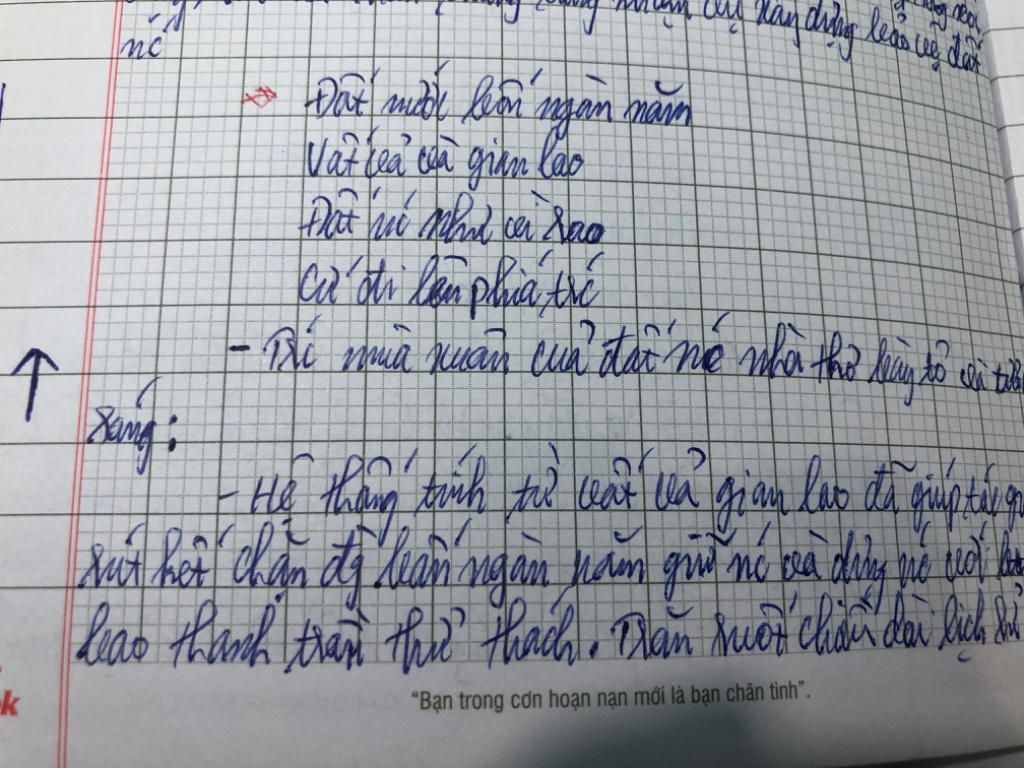 xây dựng bảo vệ đất
nc
Đất nước bốn ngàn năm
Vất vả và gian lao
Đất nc như vì sao
Cứ đi lên phía trc
- Từ mùa xuân của đất nc nhà thơ bày tỏ
sáng:
- Hệ thống tính từ vất vả gian lao đã giúp tác g
hết chặn đg bốn ngàn năm giữ nc và dựng nc với
bao thanh trần thử thách. Trên suốt chiều dài lịch sử
"Bạn trong cơn hoạn nạn mới là bạn chân tình".
k